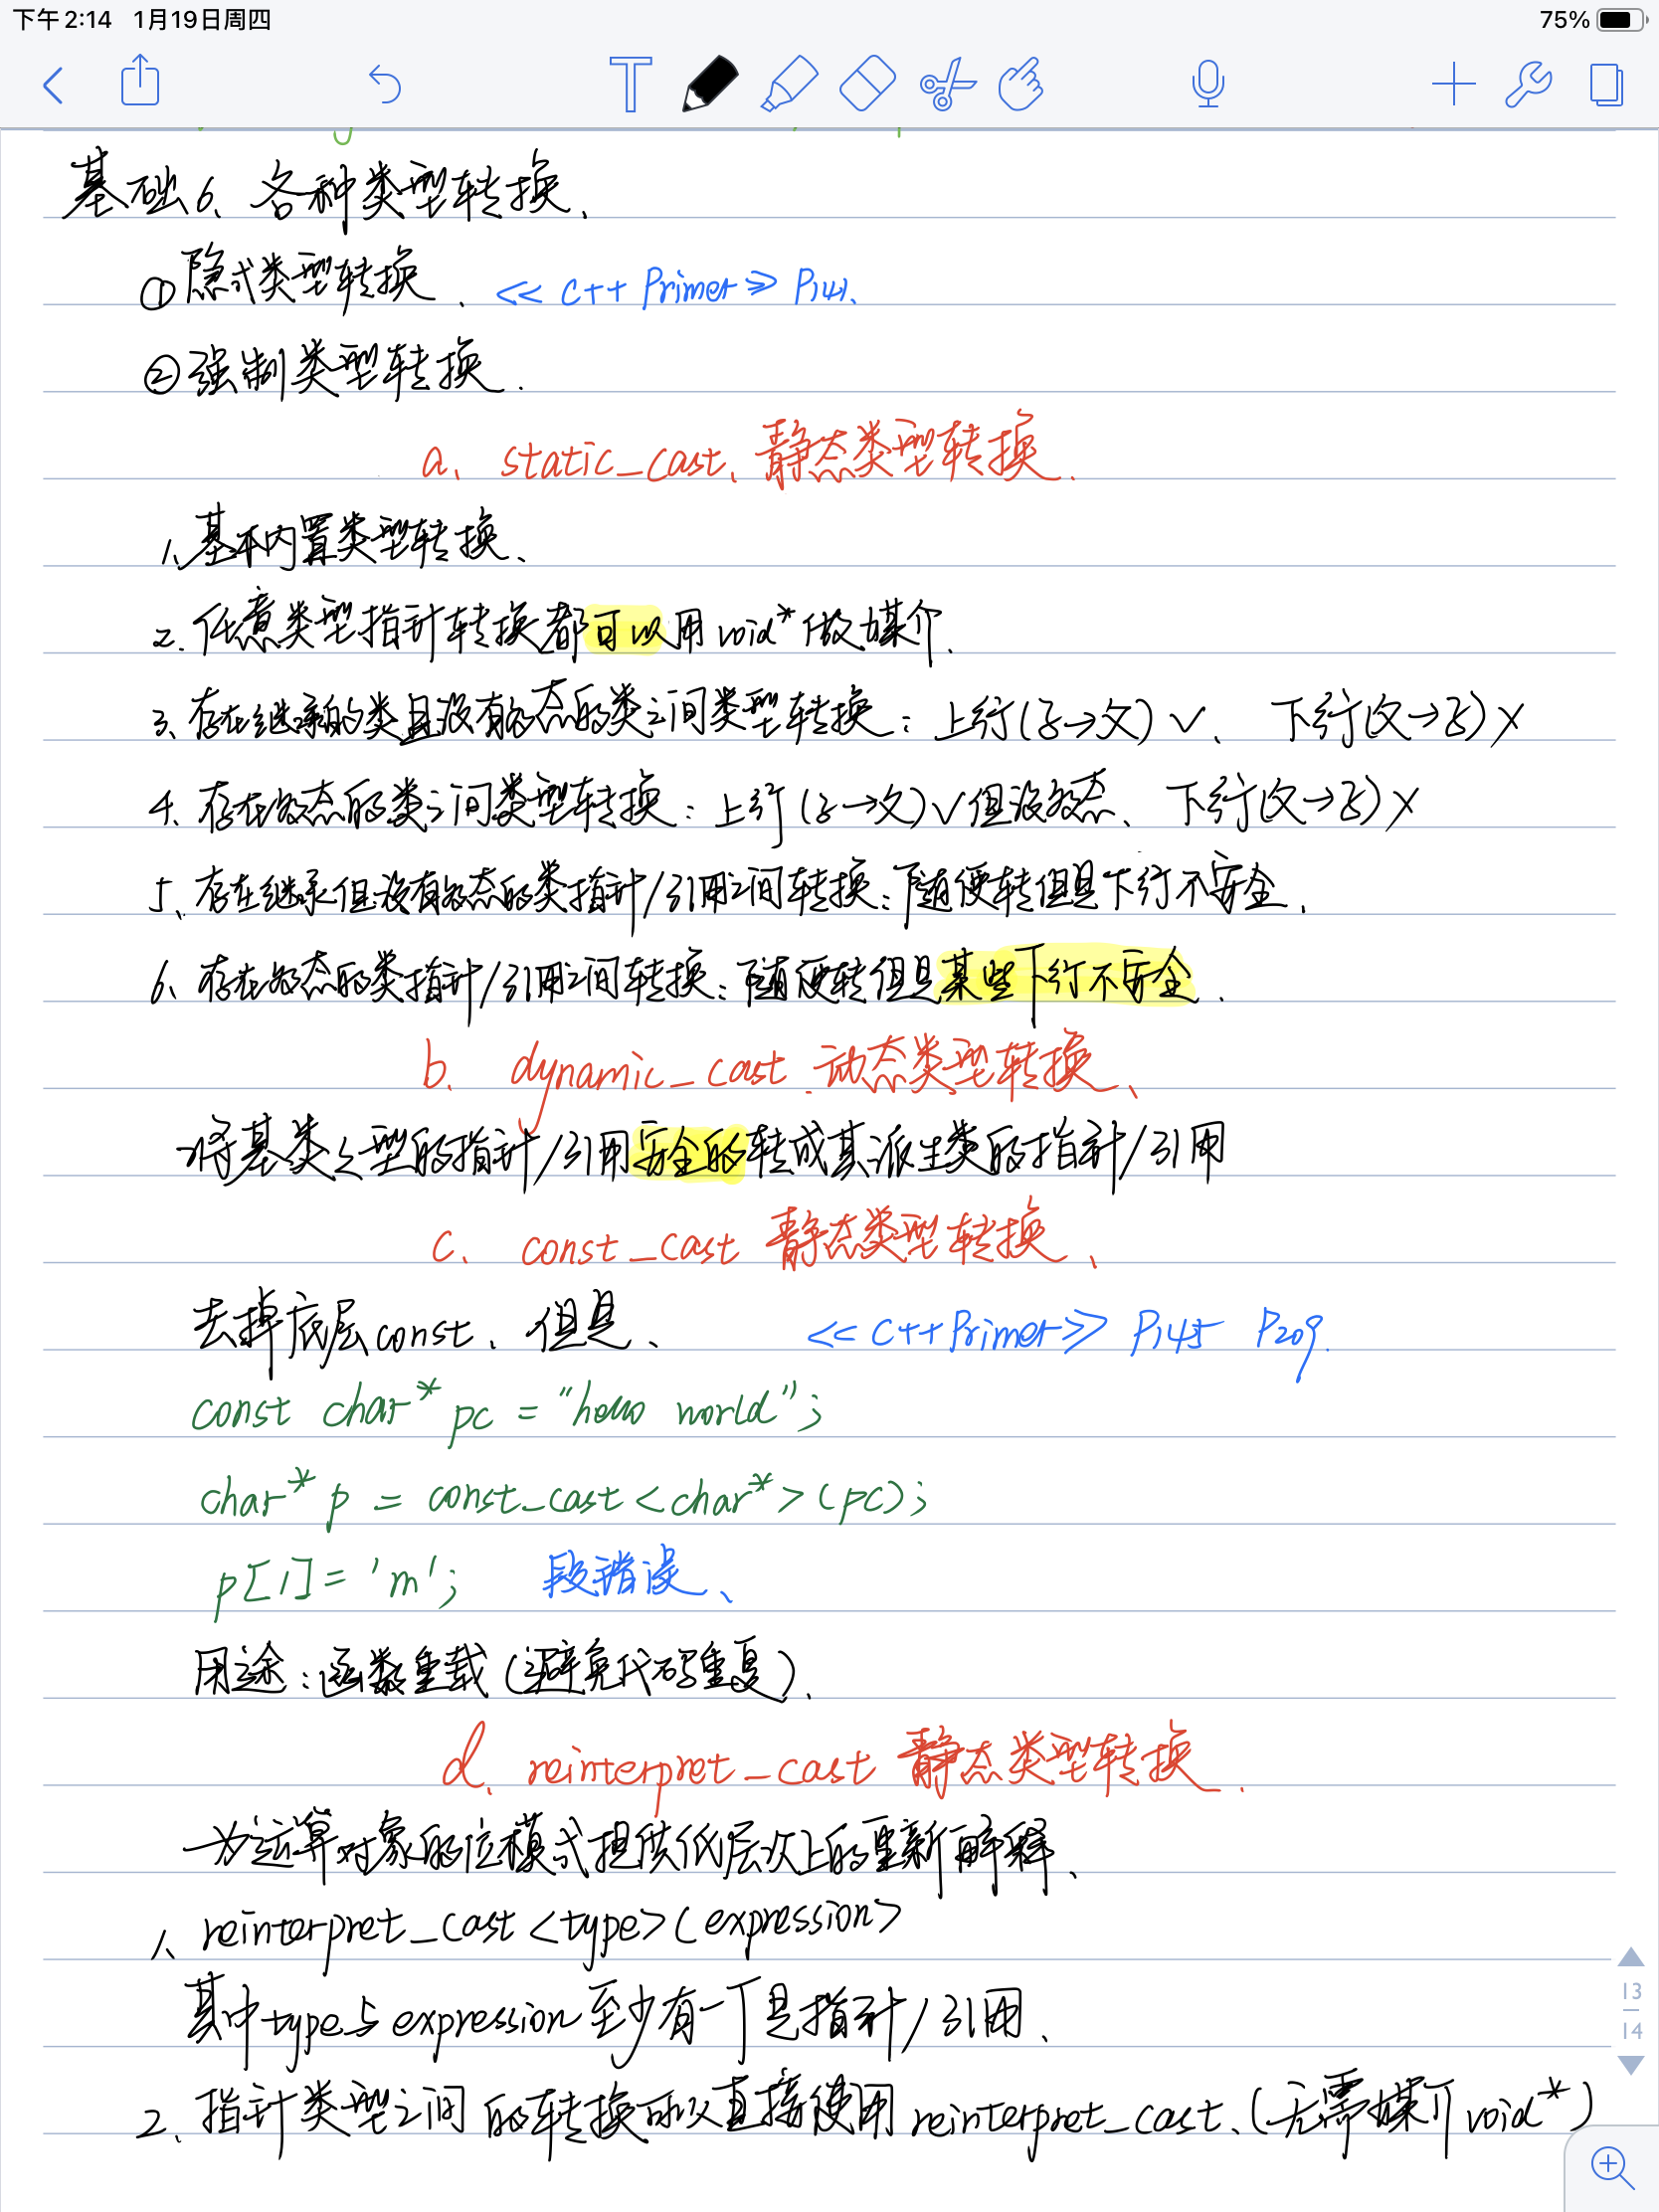 下午2:14 1月19日周四
75%
基础6、各种类型转换、
①隐式类型转换、 <<C++ Primer>> P141.
②强制类型转换.
a、static_cast、静态类型转换.
1、基本内置类型转换、
2.任意类型指针转换都可以用void*做媒介.
3、存在继承的类且没有多态的类之间类型转换：上行(子→父)√、 下行(父→子)X
4、存在多态的类之间类型转换：上行(子→父)√但没多态、 下行(父→子)X
5、存在继承但没有多态的类指针/引用之间转换：随便转但是下行不安全.
6、存在多态的类指针/引用之间转换：随便转但是某些下行不安全.
b. dynamic_cast.动态类型转换、
将基类类型的指针/引用安全的转成其派生类的指针/引用
c. const_cast 静态类型转换、
去掉底层const、但是、 <<C++Primer>> P145 P209.
const char* pc = "hello world";
char* p = const_cast<char*>(pc);
p[1]='m'; 段错误、
用途：函数重载(避免代码重复).
d. reinterpret_cast 静态类型转换.
为运算对象的位模式提供低层次上的重新解释、
1、reinterpret_cast<type>(expression>
其中type与expression至少有一个是指针/引用.
2、指针类型之间的转换可以直接使用reinterpret_cast、(无需媒介void*)
13
14